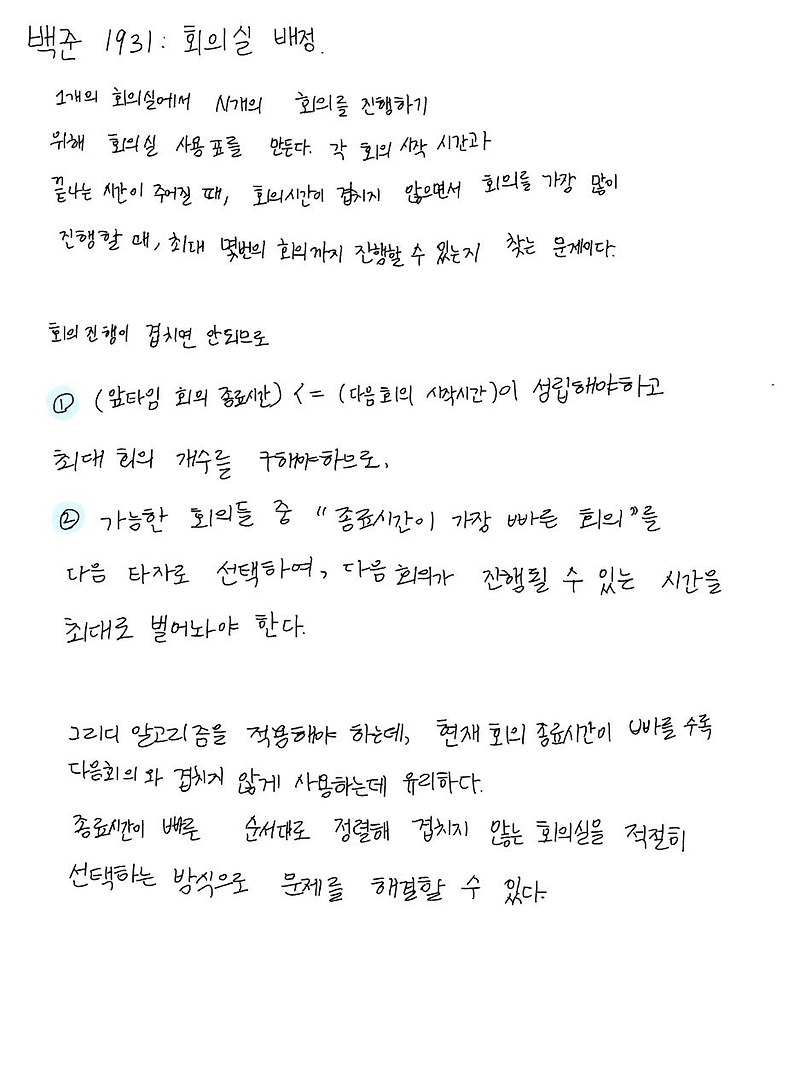 백준 1931 : 회의실 배정.
1개의 회의실에서 N개의 회의를 진행하기
위해 회의실 사용표를 만든다. 각 회의 시작 시간과
끝나는 시간이 주어질 때, 회의시간이 겹치지 않으면서 회의를 가장 많이
진행할 때, 최대 몇번의 회의까지 진행할 수 있는지 찾는 문제이다.
회의 진행이 겹치면 안되므로
① (앞타임 회의 종료시간) <= (다음회의 시작시간)이 성립해야하고
최대 회의 개수를 구해야하므로,
② 가능한 회의들 중 "종료시간이 가장 빠른 회의"를
다음 타자로 선택하여, 다음 회의가 진행될 수 있는 시간을
최대로 벌어놔야 한다.
그리디 알고리즘을 적용해야 하는데, 현재 회의 종료시간이 빠를수록
다음회의와 겹치지 않게 사용하는데 유리하다.
종료시간이 빠른 순서대로 정렬해 겹치지 않는 회의실을 적절히
선택하는 방식으로 문제를 해결할 수 있다.